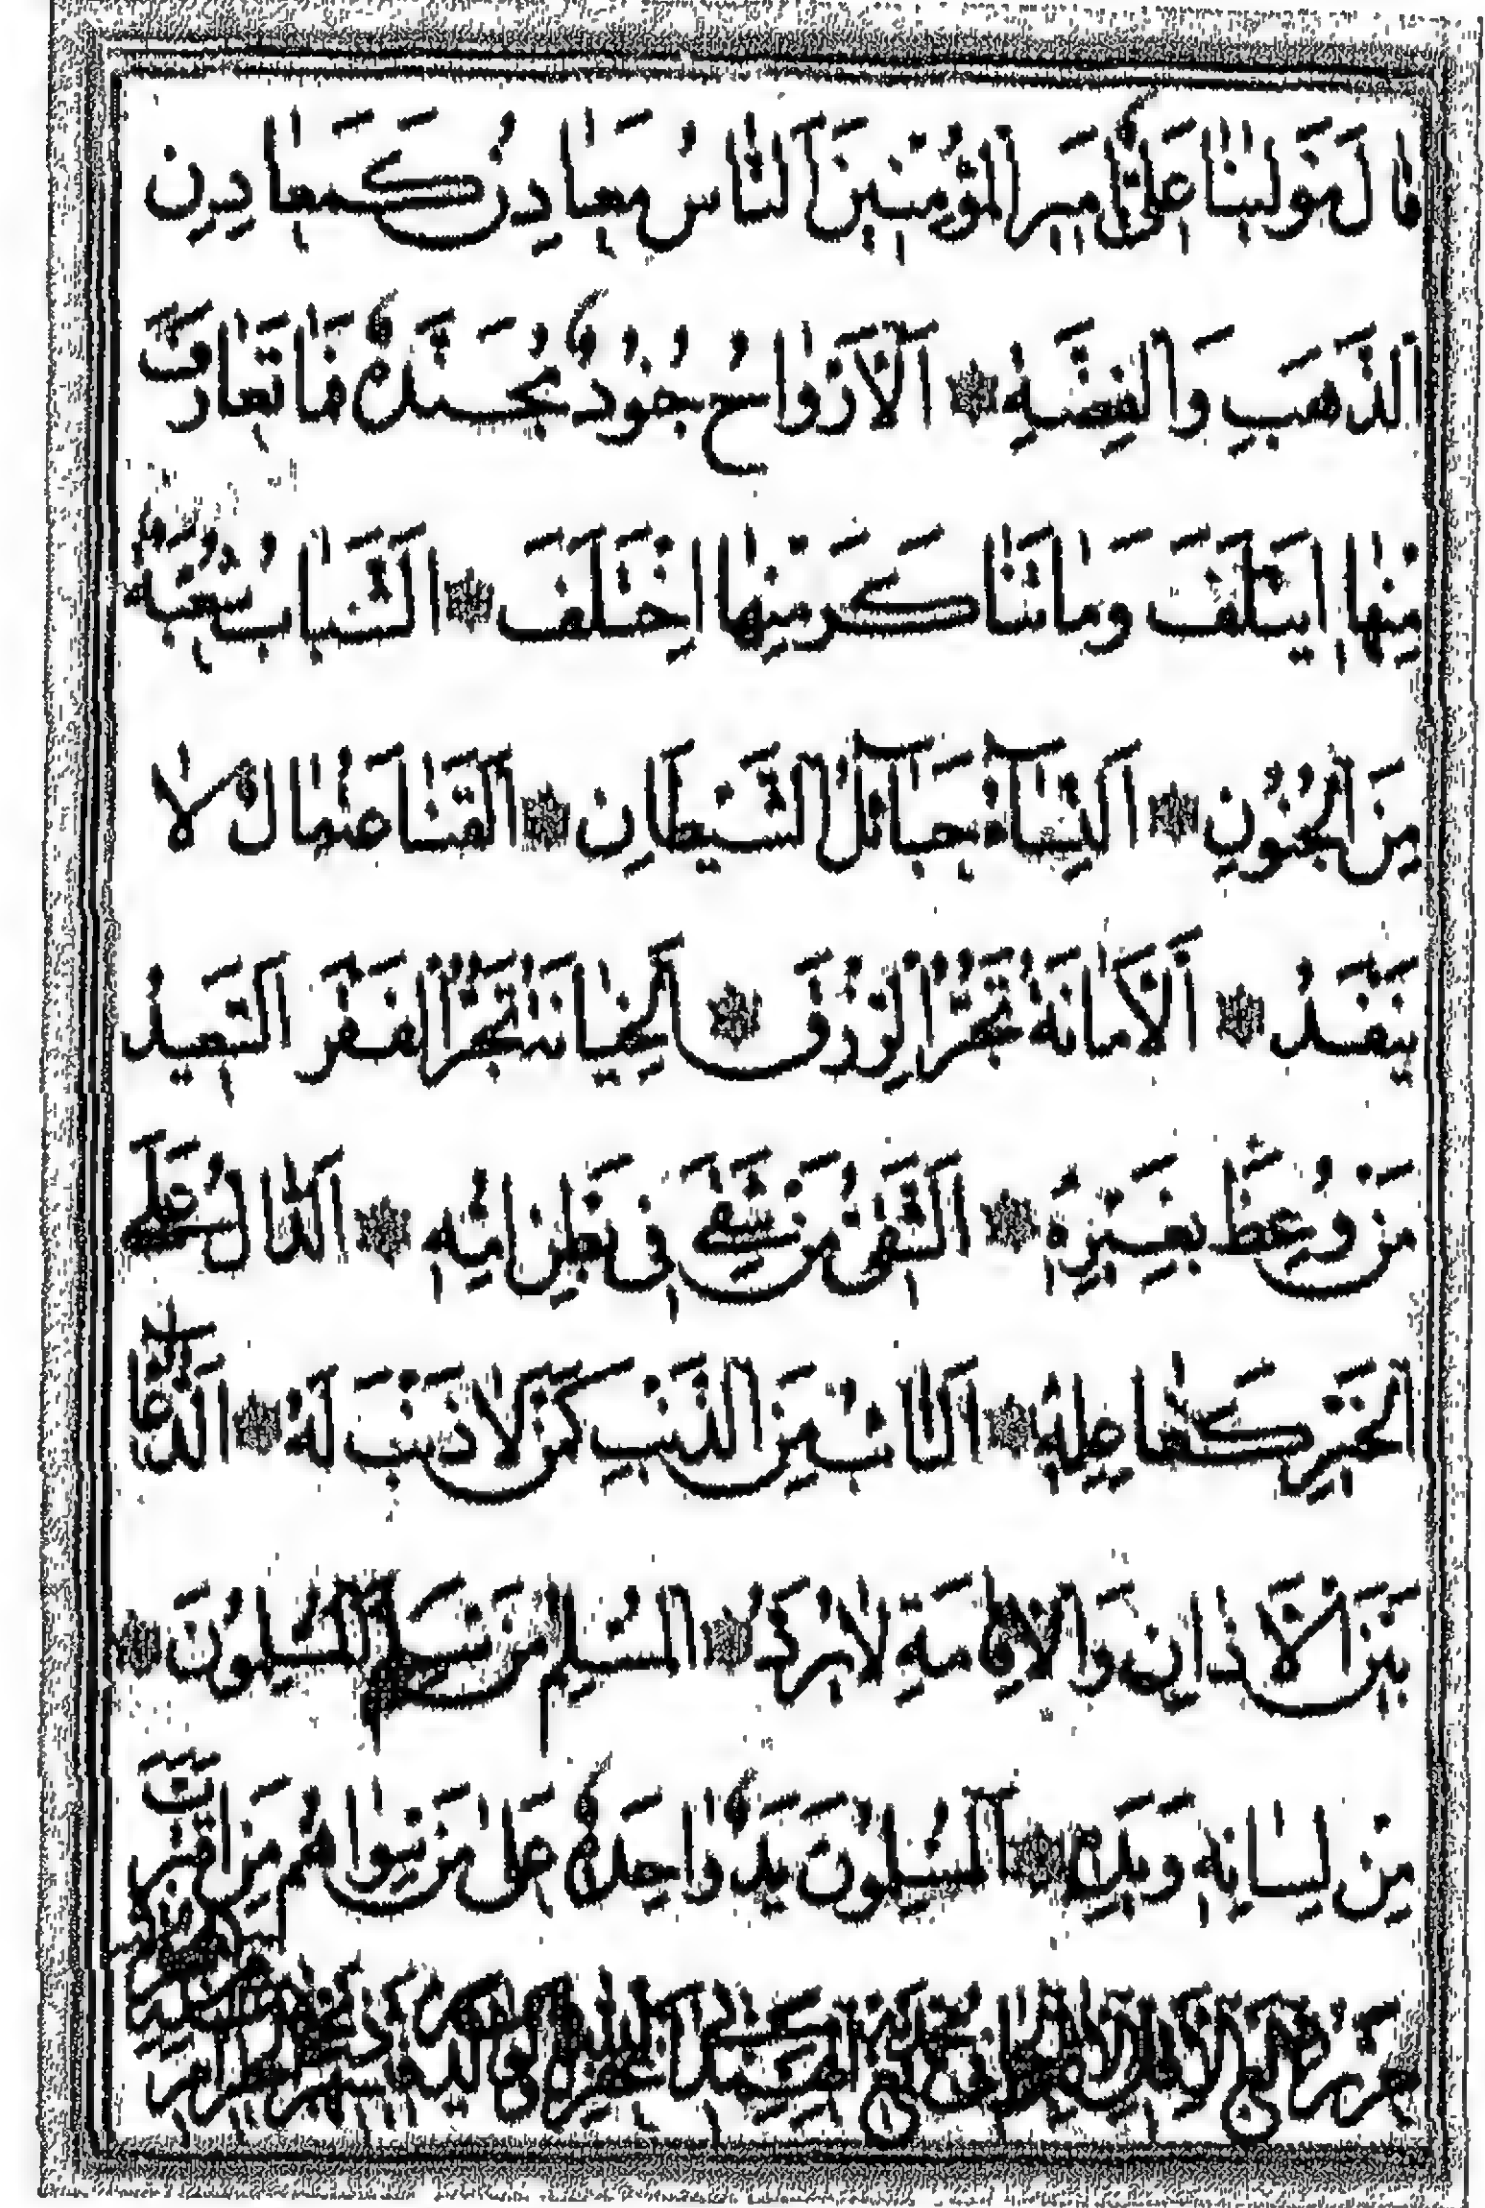 قَالَ مَوْلٰينَا عَلِىٌّ اَمِيرُ الْمُؤْمِنِينَ اَلنَّاسُ مَعَادِنُ كَمَعَادِنِ
الذَّهَبِ وَالْفِضَّةِ ۞ اَلْاَرْوَاحُ جُنُودٌ مُجَنَّدَةٌ فَمَا تَعَارَفَ
مِنْهَا ايتَلَفَ وَمَا تَنَاكَرَ مِنْهَا اخْتَلَفَ ۞ اَلشَّبَابُ شُعْبَةٌ
مِنَ الْجُنُونِ ۞ اَلنِّسَآءُ حَبَآئِلُ الشَّيْطَانِ ۞ اَلْقَنَاعَةُ مَالٌ لَا
يَنْفَدُ ۞ اَلْاَمَانَةُ تَجُرُّ الرِّزْقَ ۞ اَلْخِيَانَةُ تَجُرُّ الْفَقْرَ ۞ اَلسَّعِيدُ
مَنْ وُعِظَ بِغَيْرِهِ ۞ اَلشَّقِىُّ مَنْ شَقِىَ فِى بَطْنِ اُمِّهِ ۞ اَلدَّالُّ عَلَى
الْخَيْرِ كَفَاعِلِهِ ۞ اَلتَّائِبُ مِنَ الذَّنْبِ كَمَنْ لَا ذَنْبَ لَهُ ۞ اَلدُّعَآءُ
بَيْنَ الْاَذَانِ وَالْاِقَامَةِ لَا يُرَدُّ ۞ اَلْمُسْلِمُ مَنْ سَلِمَ الْمُسْلِمُونَ ۞
مِنْ لِسَانِهِ وَيَدِهِ ۞ اَلْمُسْلِمُونَ يَدٌ وَاحِدَةٌ عَلَى مَنْ سِوَاهُمْ مَنِ اقْتَرَبَ